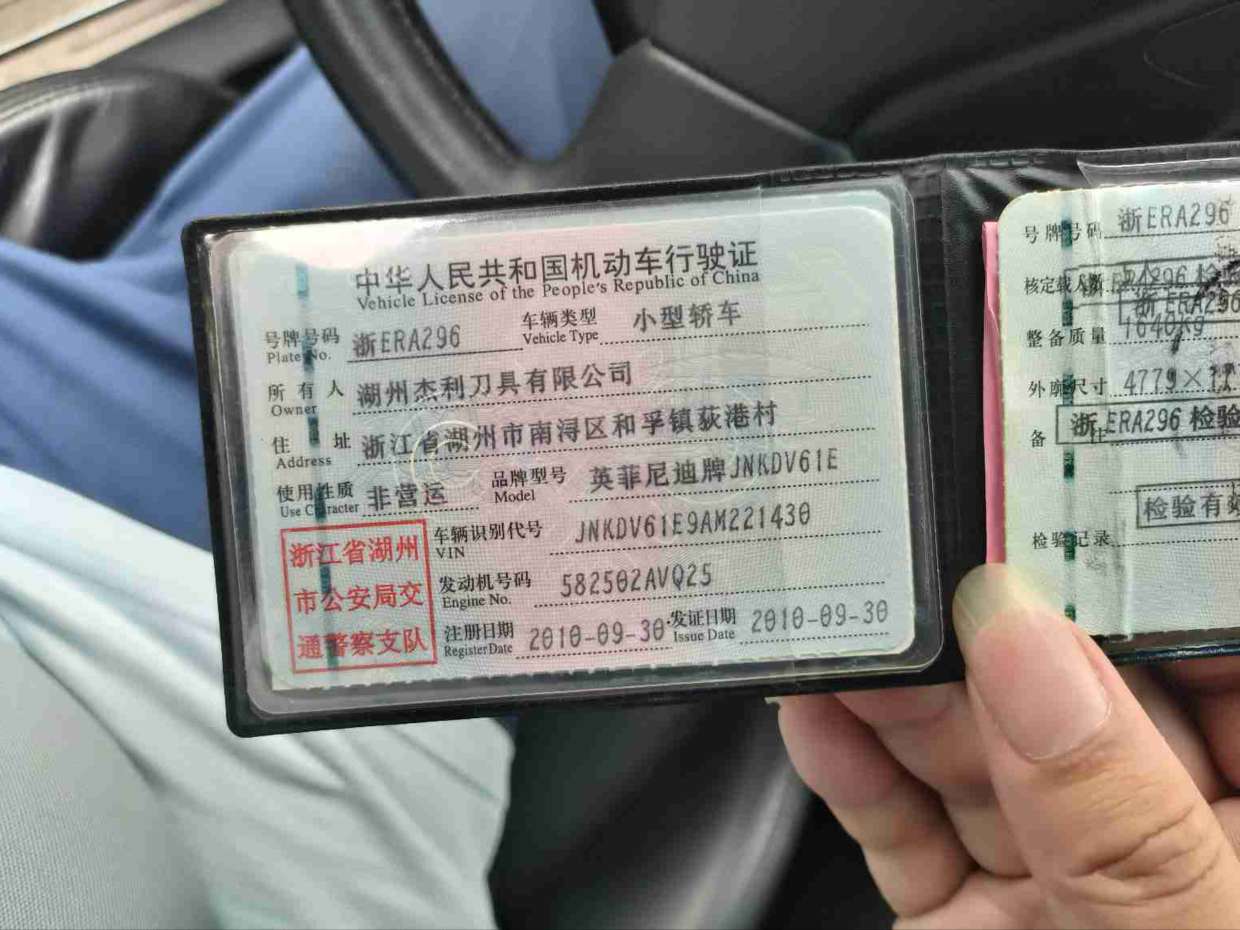 中华人民共和国机动车行驶证
Vehicle License of the People's Republic of China
号牌号码 浙ERA296 车辆类型 小型轿车
Plate No. Vehicle Type
所有人 湖州杰利刀具有限公司
Owner
住址 浙江省湖州市南浔区和孚镇荻港村
Address
使用性质 非营运 品牌型号 英菲尼迪牌JNKDV61E
Use Character Model
车辆识别代号 JNKDV61E9AM221430
VIN
发动机号码 582502AVQ25
Engine No.
注册日期 2010-09-30 发证日期 2010-09-30
Register Date Issue Date
浙江省湖州
市公安局交
通警察支队
号牌号码 浙ERA296
核定载人数
浙ERA296
整备质量 1640kg
外廓尺寸 4779×
备注
浙ERA296 检验
检验有效
检验记录